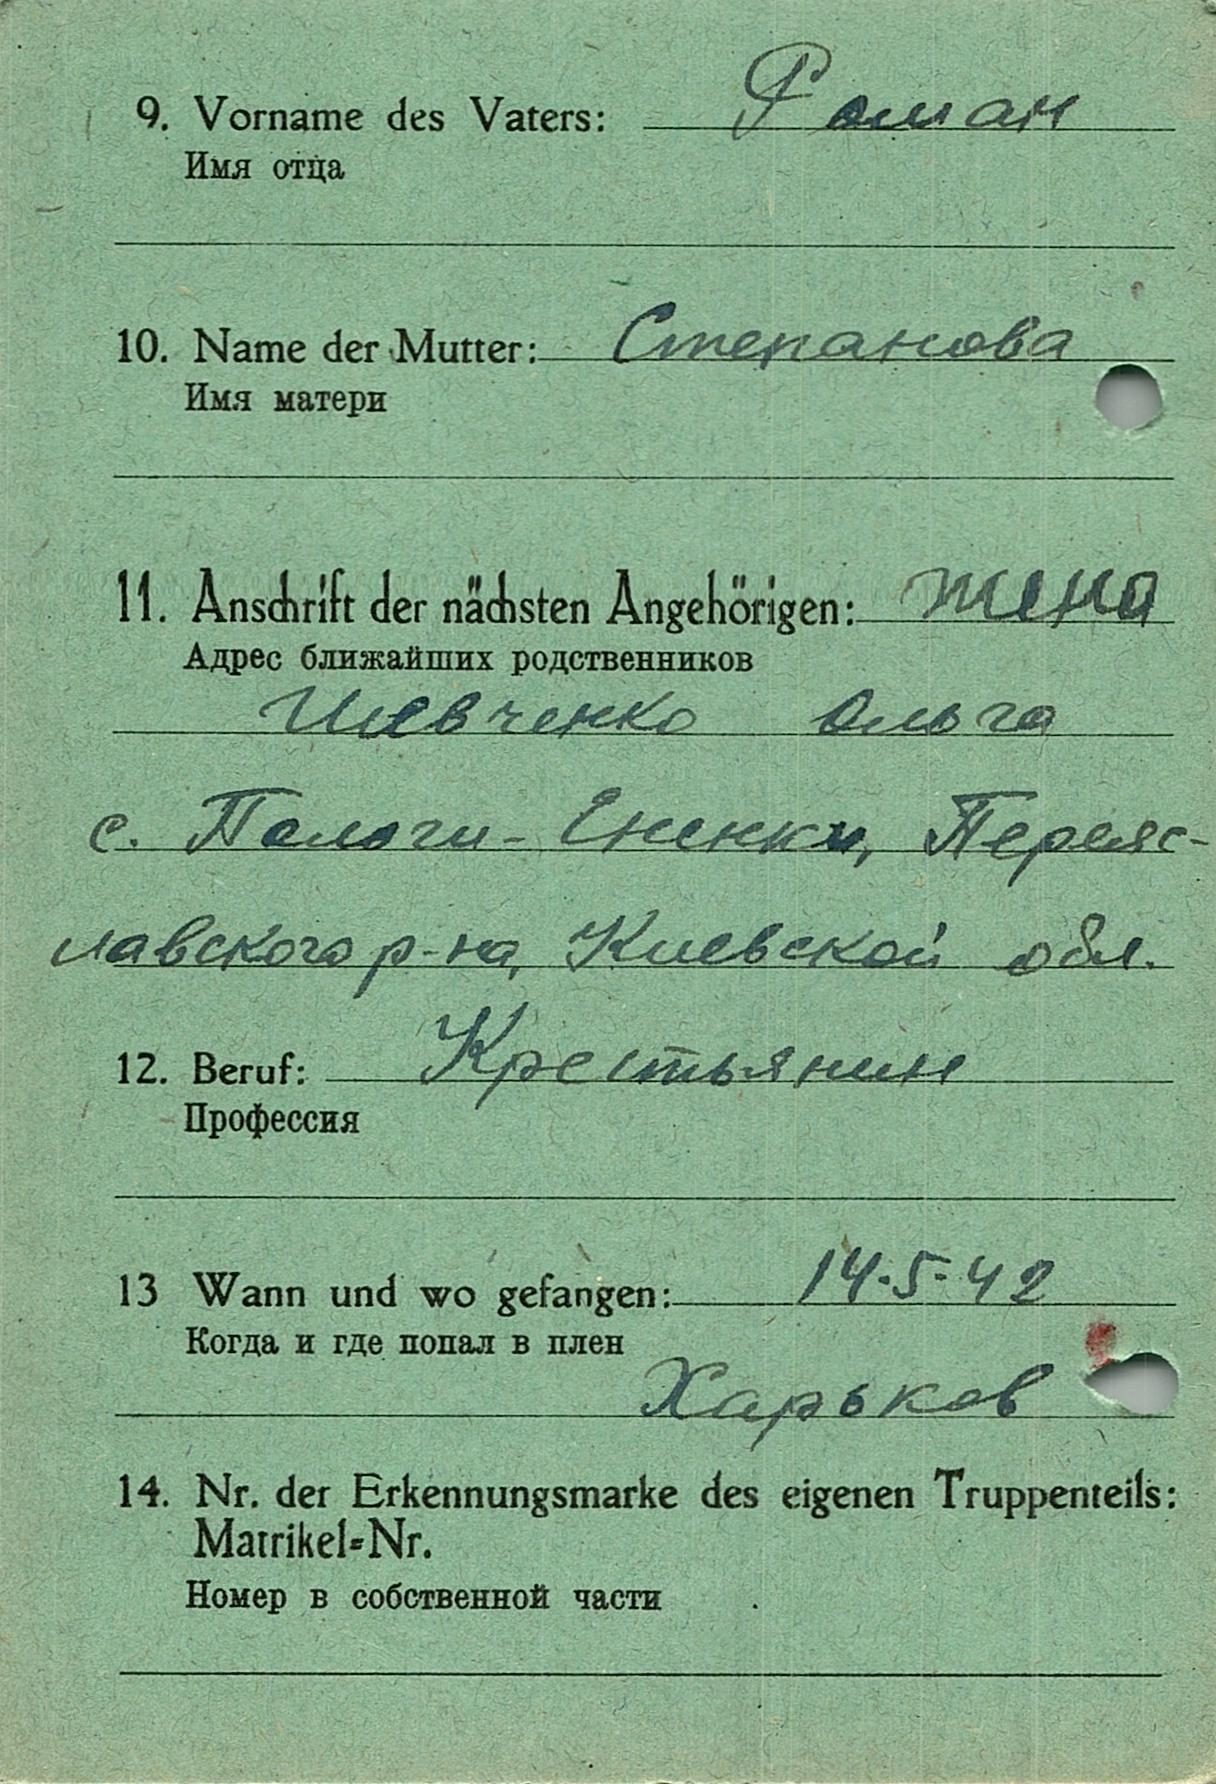 9. Vorname des Vaters: Роман
Имя отца
10. Name der Mutter: Степанова
Имя матери
11. Anschrift der nächsten Angehörigen: жена
Адрес ближайших родственников
Шевченко Ольга
с. Пологи-Ененки, Переяс-
лавского р-на, Киевской обл.
12. Beruf: Крестьянин
Профессия
13 Wann und wo gefangen: 14.5.42
Когда и где попал в плен
Харьков
14. Nr. der Erkennungsmarke des eigenen Truppenteils:
Matrikel=Nr.
Номер в собственной части